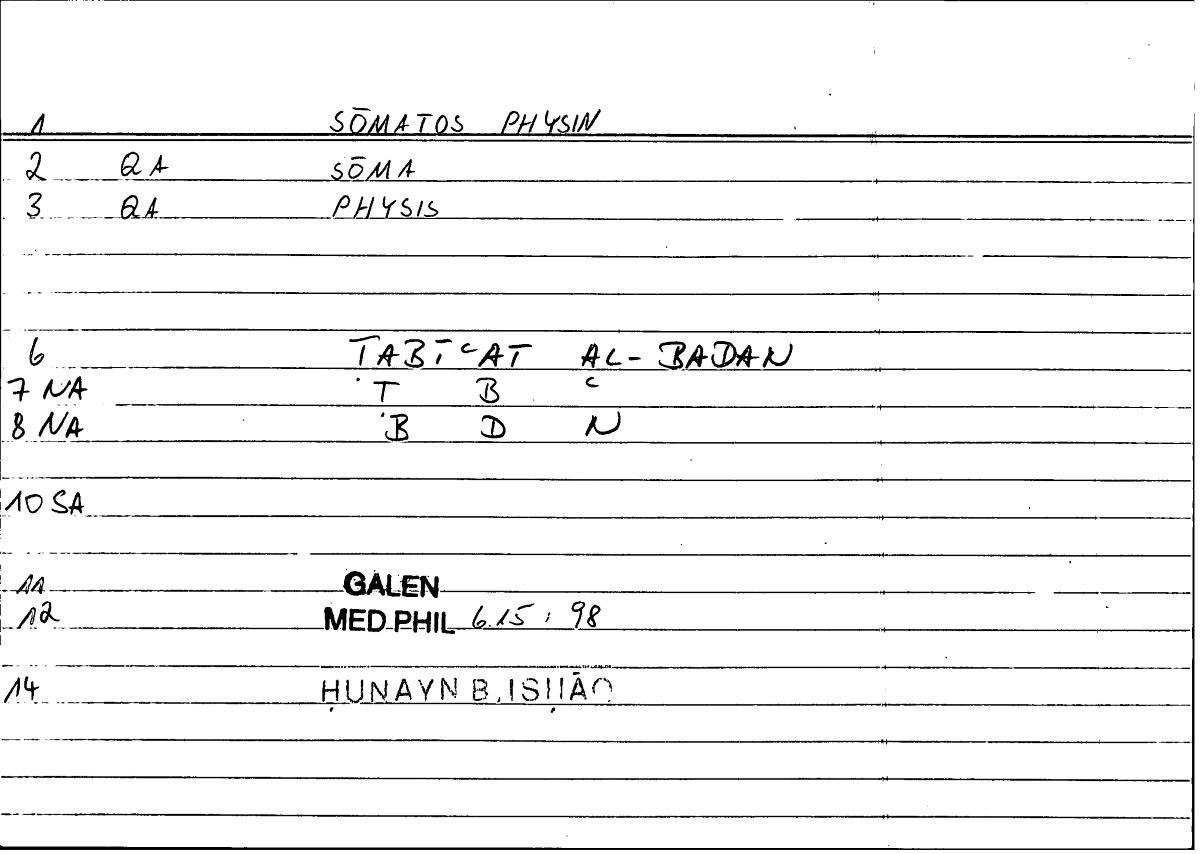 1 SŌMATOS PHYSIN
2 QA SŌMA
3 QA PHYSIS
6 ṬABĪʿAT AL-BADAN
7 NA Ṭ B ʿ
8 NA B D N
10 SA
11 GALEN
12 MED PHIL 6.15 , 98
14 ḤUNAYN B. ISḤĀQ